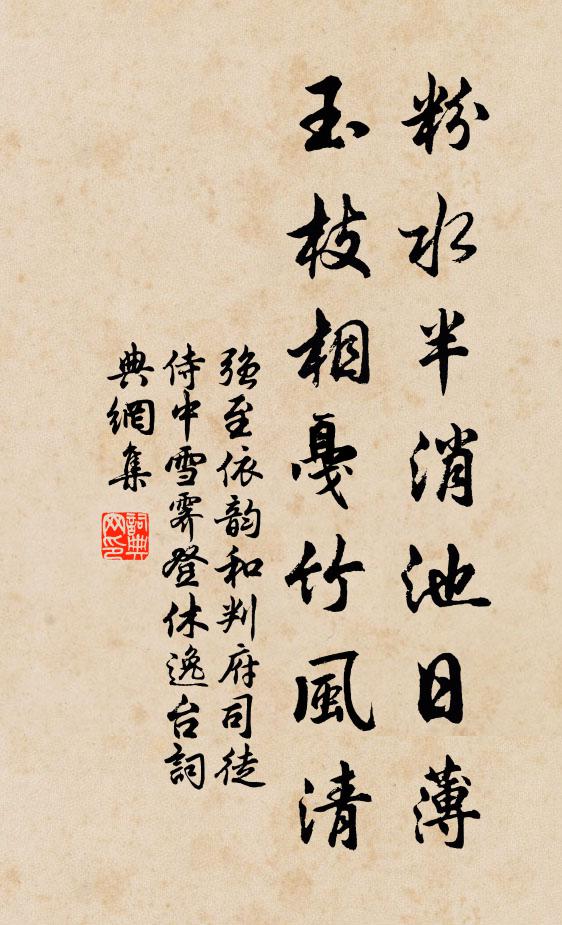 粉水半消池日薄
玉枝相戞竹風清
強至依韵和判府司徒
侍中雪霽登休逸台詞
典網集
詞典
网印